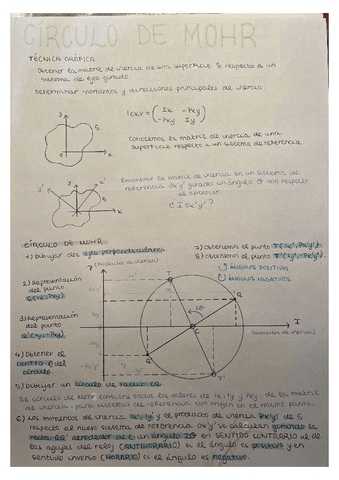 CÍRCULO DE MOHR
TÉCNICA GRÁFICA
Obtener la matriz de inercia de una superficie S respecto a un
sistema de ejes girado.
Determinar momentos y direcciones principales de inercia.
Ix -Pxy
-Pxy Iy
Conocemos la matriz de inercia de una
superficie respecto a un sistema de referencia
Encontrar la matriz de inercia en un sistema de
referencia Ox'y' girado un ángulo θ con respecto
al anterior.
¿I Ox'y'?
CÍRCULO DE MOHR
1) Dibujar dos ejes perpendiculares
2) Representación
del punto
3) Representación
del punto
4) Obtener el
centro C del
círculo
7) Obtenemos el punto
8) Obtenemos el punto
ÁNGULOS POSITIVOS
ÁNGULOS NEGATIVOS
P
(Productos de inercia)
T
Q
2θ
C
I
(Momentos de inercia)
Q'
T'
5) Dibujar un círculo de radio CQ
El círculo de Mohr contiene todos los valores de Ix, Iy y Pxy de la matriz
de inercia para sistemas de referencia con origen en el mismo punto.
6) Los momentos de inercia Ix', Iy' y el producto de inercia Px'y' de S
respecto al nuevo sistema de referencia Ox'y' se calculan girando la
recta QQ' alrededor de C un ángulo 2θ en SENTIDO CONTRARIO al de
las agujas del reloj (ANTIHORARIO) si el ángulo es positivo y en
sentido inverso (HORARIO) si el ángulo es negativo.